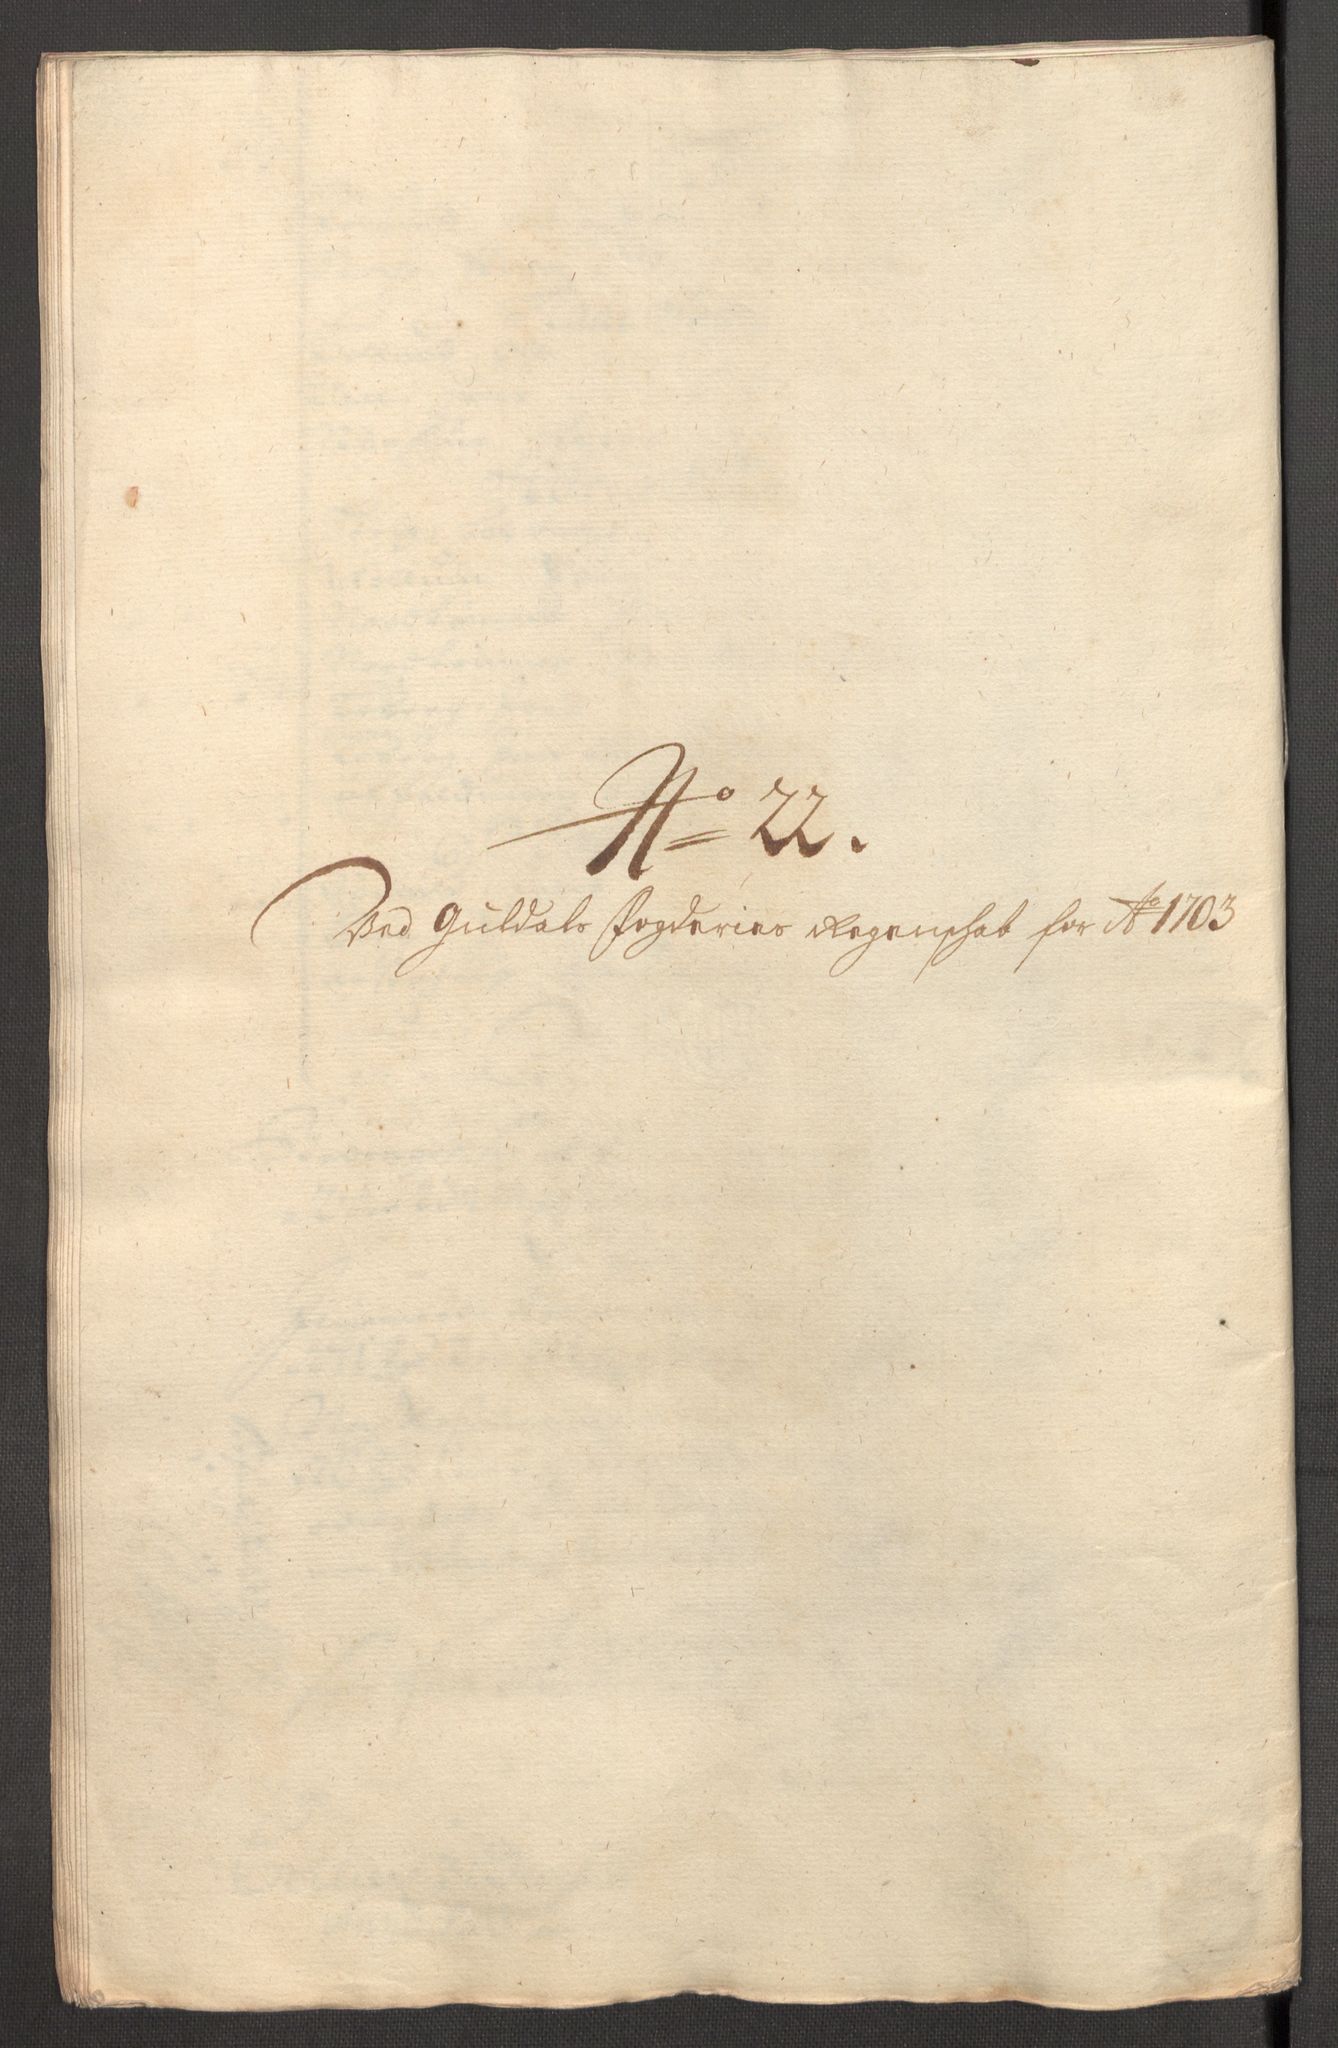 No 22.
Ved Guldals Fogderies Regenschab for Ao 1703